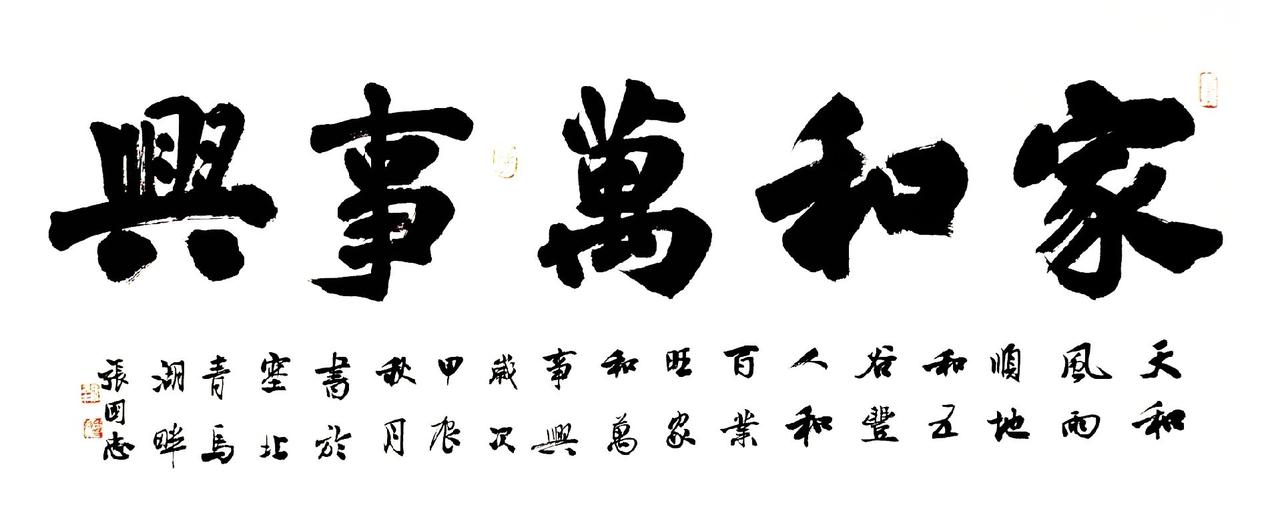 家和萬事興
天和
風雨
順地
和五
谷豐
人和
百業
旺家
和萬
事興
歲次
甲辰
秋月
書於
塞北
青馬
湖畔
張國志